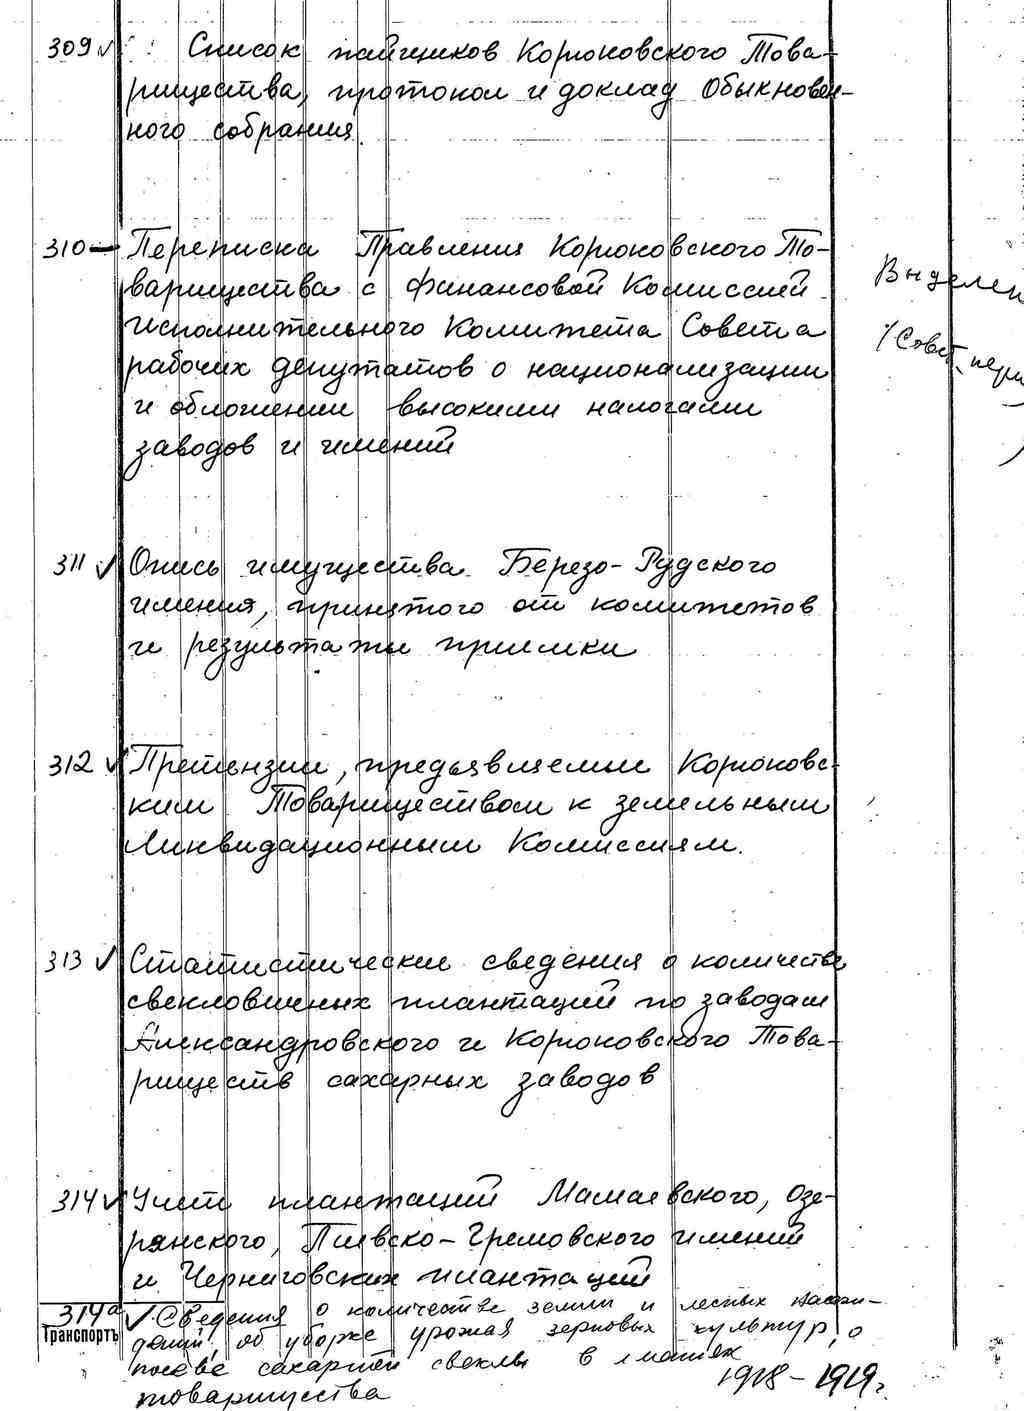 309 ✓ Список пайщиков Корюковского Това-
рищества, протокол и доклад Обыкновен-
ного собрания
310 — Переписка Правления Корюковского То-
варищества с Финансовой Комиссией
Исполнительного Комитета Совета
рабочих депутатов о национализации
и обложении высокими налогами
заводов и имений
Выделен
/Совет. пери
311 ✓ Опись имущества Березо-Рудского
имения, принятого от комитетов
и результаты приемки
312 ✓ Претензии, предъявляемые Корюковс-
ким Товариществом к земельным
Ликвидационным Комиссиям.
313 ✓ Статистические сведения о количестве
свекловичных плантаций по заводам
Александровского и Корюковского Това-
риществ сахарных заводов
314 ✓ Учет плантаций Мамаевского, Озе-
рянского, Пиевско-Гремовского имений
и Черниговских плантаций
314а ✓ Сведения о количестве земли и лесных насаж-
Транспортъ
дений, об уборке урожая зерновых культур, о
посеве сахарной свеклы в имениях
товарищества
1918-1919г.